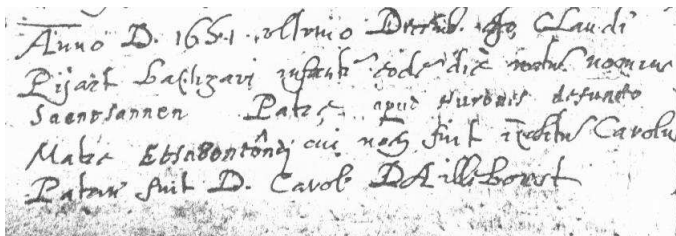 Anno D. 1651. ultimo Decemb. ego Claudi
Pijart baptizavi infantē eodē die natū nomine
Saentsannen Patre apud Hurones defuncto
Matre cui nomē fuit inditū Carolus
Patrin' fuit D. Carol' D'Ailleboust